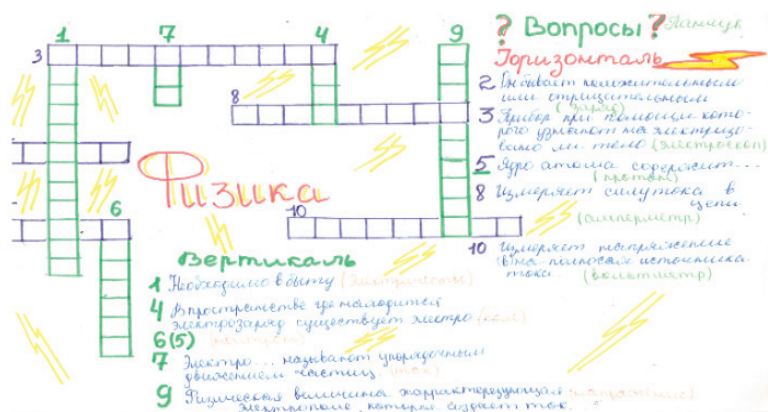 1 7 4 9
3
8
6
10
Физика
? Вопросы ?
Горизонталь
2 бывает положительным
или отрицательным
(заряд)
3 Прибор при помощи кото-
рого узнают наэлектризо-
вано ли тело (электроскоп)
5 Ядро атома содержит...
(протон)
8 Измеряет силу тока в
цепи
(амперметр)
10 Измеряет напряжение
на полюсах источника
тока (вольтметр)
Вертикаль
1 Необходимо в быту (электричество)
4 В пространстве где находится
электрозаряд существует электро (поле)
6(5) (нейтрон)
7 Электро... называют упорядочным
движением частиц. (ток)
9 Физическая величина характерезующая (напряжение)
электрополе, которое создает ток.